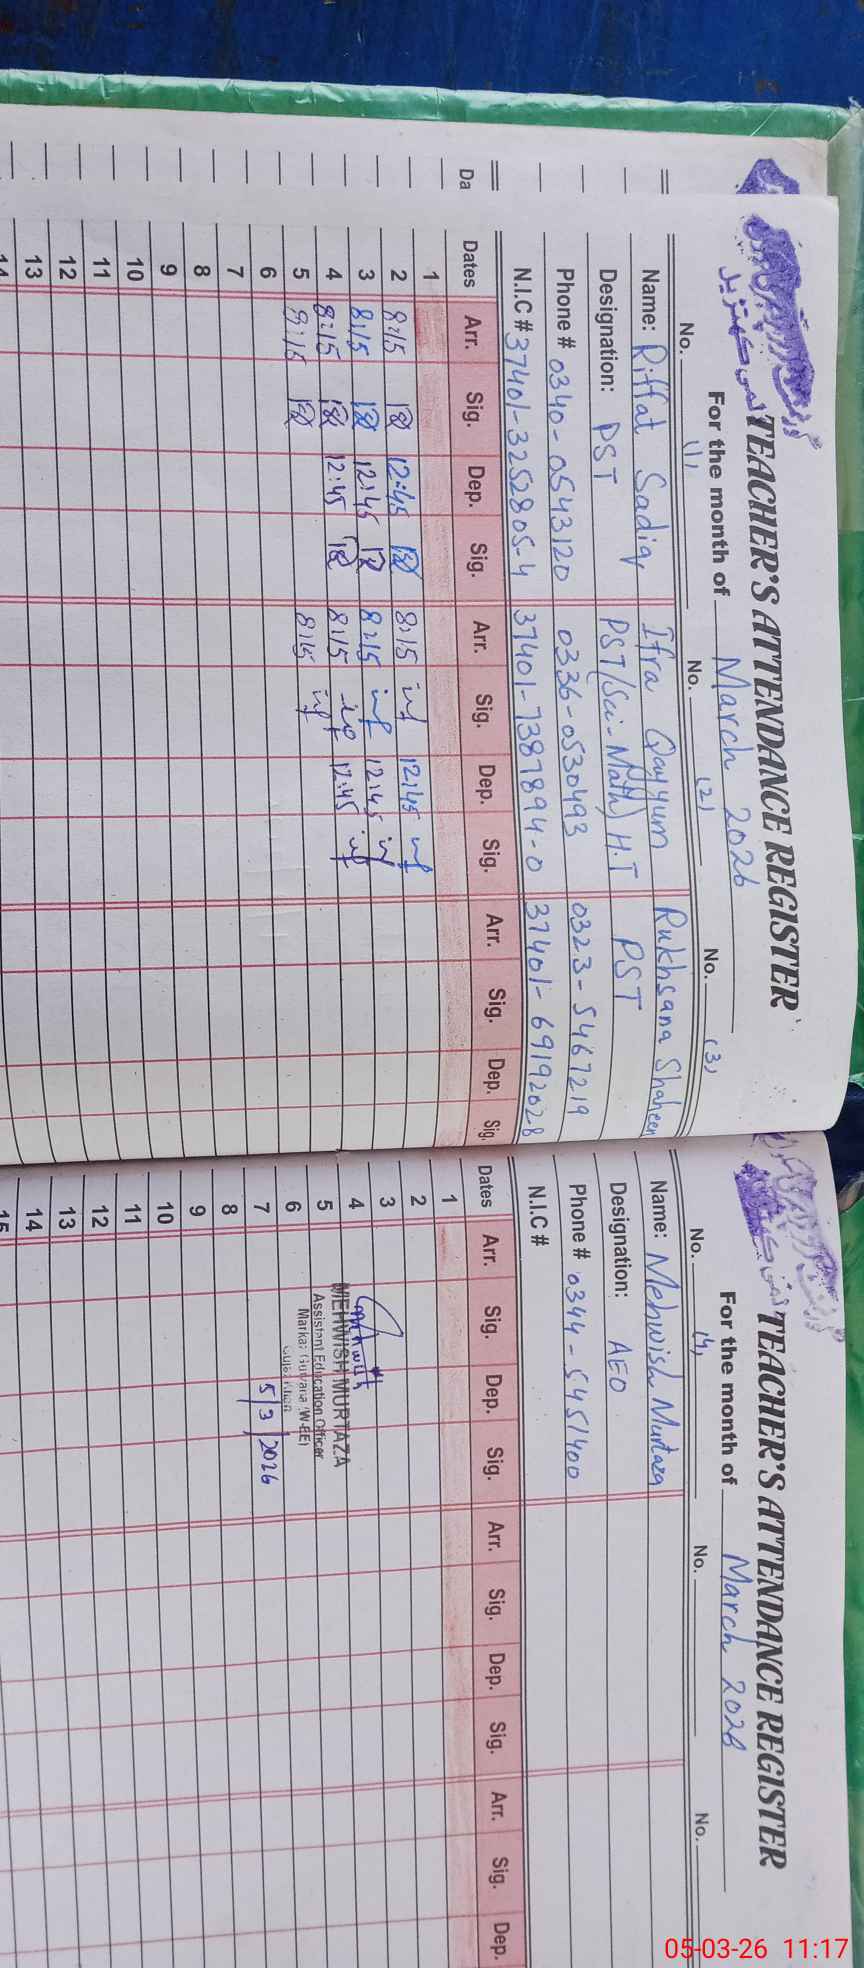 TEACHER'S ATTENDANCE REGISTER
For the month of March 2026
No. (1) No. (2) No. (3)
Name: Riffat Sadiq Ifra Qayyum Rukhsana Shaheen
Designation: PST PST (Sci-Math) H.T PST
Phone # 0340-0543120 0336-0530493 0323-5467219
N.I.C # 37401-3252805-4 37401-7387894-0 37401-6919202-8
Dates Arr. Sig. Dep. Sig. Arr. Sig. Dep. Sig. Arr. Sig. Dep. Sig.
1
2 8:15 12:45 8:15 12:45
3 8:15 12:45 8:15 12:45
4 8:15 12:45 8:15 12:45
5 8:15 8:15
6
7
8
9
10
11
12
13
14
Da
TEACHER'S ATTENDANCE REGISTER
For the month of March 2026
No. (4) No. No.
Name: Mehwish Murtaza
Designation: AEO
Phone # 0344-5451400
N.I.C #
Dates Arr. Sig. Dep. Sig. Arr. Sig. Dep. Sig. Arr. Sig. Dep.
1
2
3
4 MEHWISH MURTAZA
5 Assistent Education Officer
6 Markaz (W-EE)
7 5/3/2026
8
9
10
11
12
13
14
15
05-03-26 11:17